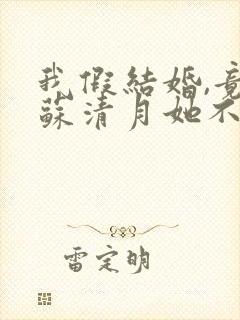 我假結婚,竟
蘇清月她不
雷定明